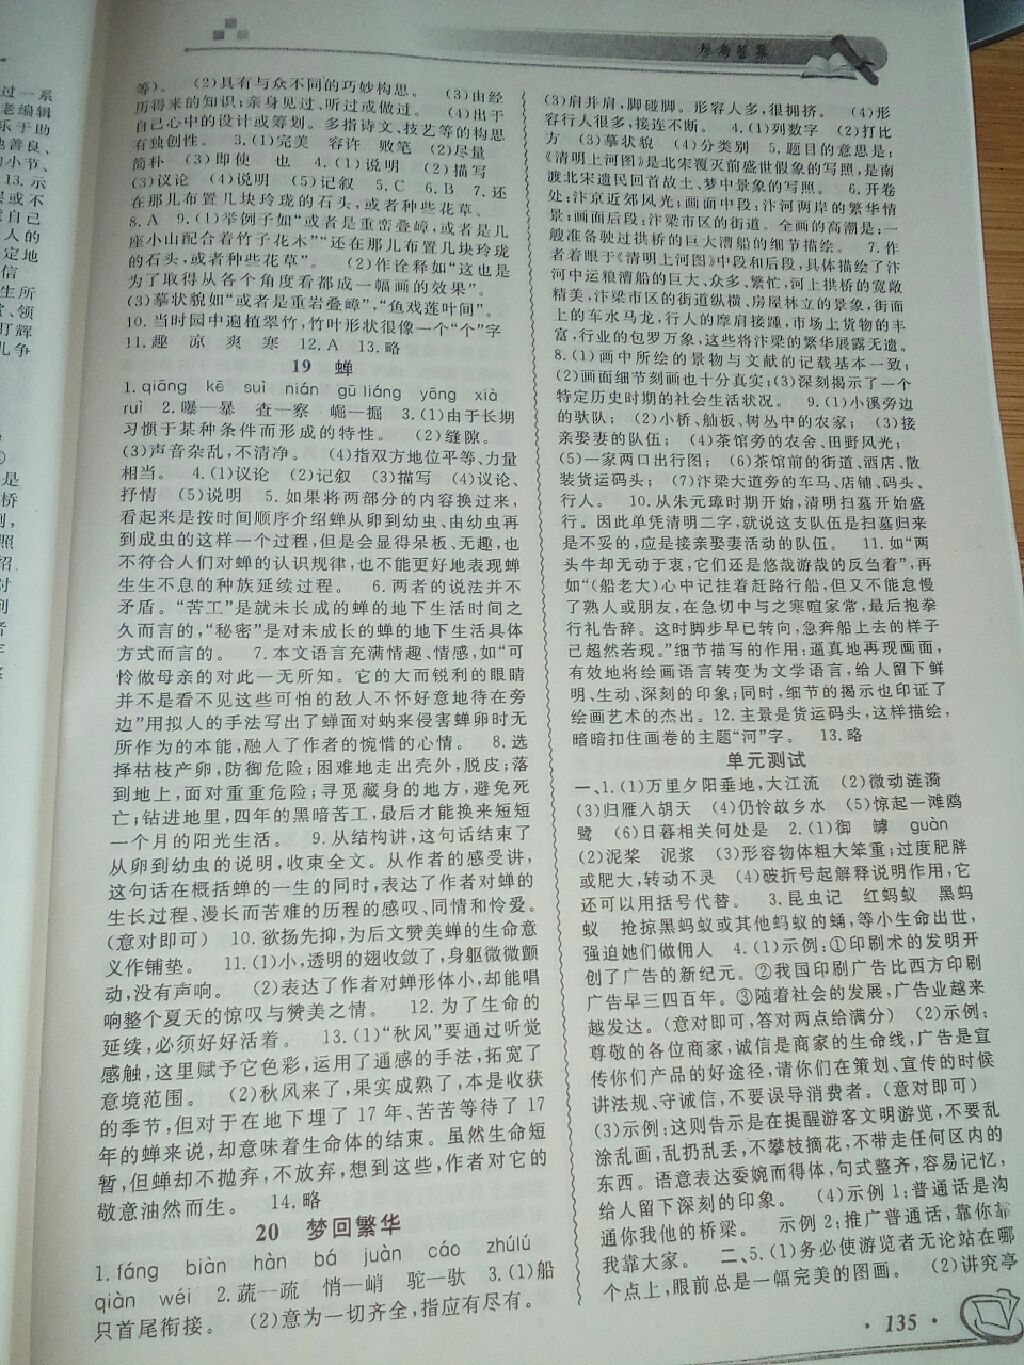 参考答案
过一系
老编辑
乐于助
也善良、
的小节、
13.示
或不
自己
人的
定地
信
生所
、领
丁辉
儿争
是
桥
到,
照
绍.
对
到
者
等)。 (2)具有与众不同的巧妙构思。 (3)由经
历得来的知识;亲身见过、听过或做过。 (4)出于
自己心中的设计或筹划。多指诗文、技艺等的构思
有独创性。 3.(1)完美 容许 败笔 (2)尽量
简朴 (3)即使 也 4.(1)说明 (2)描写
(3)议论 (4)说明 (5)记叙 5.C 6.B 7.还
在那儿布置几块玲珑的石头,或者种些花草。
8.A 9.(1)举例子如“或者是重峦叠嶂,或者是几
座小山配合着竹子花木”“还在那儿布置几块玲珑
的石头,或者种些花草”。 (2)作诠释如“这也是
为了取得从各个角度看都成一幅画的效果”。
(3)摹状貌如“或者是重岩叠嶂”,“鱼戏莲叶间”。
10.当时园中遍植翠竹,竹叶形状很像一个“个”字
11.趣 凉 爽 寒 12.A 13.略
19 蝉
1.qiāng kē suì nián gū liáng yōng xià
ruì 2.曝—暴 查—察 崛—掘 3.(1)由于长期
习惯于某种条件而形成的特性。 (2)缝隙。
(3)声音杂乱,不清净。 (4)指双方地位平等、力量
相当。 4.(1)议论 (2)记叙 (3)描写 (4)议论、
抒情 (5)说明 5.如果将两部分的内容换过来,
看起来是按时间顺序介绍蝉从卵到幼虫、由幼虫再
到成虫的这样一个过程,但是会显得呆板、无趣,也
不符合人们对蝉的认识规律,也不能更好地表现蝉
生生不息的种族延续过程。 6.两者的说法并不
矛盾。“苦工”是就未长成的蝉的地下生活时间之
久而言的,“秘密”是对未成长的蝉的地下生活具体
方式而言的。 7.本文语言充满情趣、情感,如“可
怜做母亲的对此一无所知。它的大而锐利的眼睛
并不是看不见这些可怕的敌人不怀好意地待在旁
边”用拟人的手法写出了蝉面对蚋来侵害蝉卵时无
所作为的本能,融人了作者的惋惜的心情。 8.选
择枯枝产卵,防御危险;困难地走出壳外,脱皮;落
到地上,面对重重危险;寻觅藏身的地方,避免死
亡;钻进地里,四年的黑暗苦工,最后才能换来短短
一个月的阳光生活。 9.从结构讲,这句话结束了
从卵到幼虫的说明,收束全文。从作者的感受讲,
这句话在概括蝉的一生的同时,表达了作者对蝉的
生长过程、漫长而苦难的历程的感叹、同情和怜爱。
(意对即可) 10.欲扬先抑,为后文赞美蝉的生命意
义作铺垫。 11.(1)小,透明的翅收敛了,身躯微微颤
动,没有声响。 (2)表达了作者对蝉形体小,却能唱
响整个夏天的惊叹与赞美之情。 12.为了生命的
延续,必须好好活着。 13.(1)“秋风”要通过听觉
感触,这里赋予它色彩,运用了通感的手法,拓宽了
意境范围。 (2)秋风来了,果实成熟了,本是收获
的季节,但对于在地下埋了17年、苦苦等待了17
年的蝉来说,却意味着生命体的结束。虽然生命短
暂,但蝉却不抛弃,不放弃,想到这些,作者对它的
敬意油然而生。 14.略
20 梦回繁华
1.fáng biàn hàn bá juàn cáo zhúlú
qiàn wéi 2.蔬—疏 悄—峭 驼—驮 3.(1)船
只首尾衔接。 (2)意为一切齐全,指应有尽有。
(3)肩并肩,脚碰脚。形容人多,很拥挤。 (4)形
容行人很多,接连不断。 4.(1)列数字 (2)打比
方 (3)摹状貌 (4)分类别 5.题目的意思是:
《清明上河图》是北宋覆灭前盛世假象的写照,是南
渡北宋遗民回首故土、梦中景象的写照。 6.开卷
处:汴京近郊风光;画面中段:汴河两岸的繁华情
景;画面后段:汴梁市区的街道。全画的高潮是:一
艘准备驶过拱桥的巨大漕船的细节描绘。 7.作
者着眼于《清明上河图》中段和后段,具体描绘了汴
河中运粮漕船的巨大、众多、繁忙,河上拱桥的宽敞
精美,汴梁市区的街道纵横、房屋林立的景象,街面
上的车水马龙,行人的摩肩接踵,市场上货物的丰
富,行业的包罗万象,这些将汴梁的繁华展露无遗。
8.(1)画中所绘的景物与文献的记载基本一致;
(2)画面细节刻画也十分真实;(3)深刻揭示了一个
特定历史时期的社会生活状况。 9.(1)小溪旁边
的驮队; (2)小桥、舢板、树丛中的农家; (3)接
亲娶妻的队伍; (4)茶馆旁的农舍、田野风光;
(5)一家两口出行图; (6)茶馆前的街道、酒店、散
装货运码头; (7)汴梁大道旁的车马、店铺、码头、
行人。 10.从朱元璋时期开始,清明扫墓开始盛
行。因此单凭清明二字,就说这支队伍是扫墓归来
是不妥的,应是接亲娶妻活动的队伍。 11.如“两
头牛却无动于衷,它们还是悠哉游哉的反刍着”,再
如“(船老大)心中记挂着赶路行船,但又不能怠慢
了熟人或朋友,在急切中与之寒暄家常,最后抱拳
行礼告辞。这时脚步早已转向,急奔船上去的样子
已超然若现。”细节描写的作用:逼真地再现画面,
有效地将绘画语言转变为文学语言,给人留下鲜
明、生动、深刻的印象;同时,细节的揭示也印证了
绘画艺术的杰出。 12.主景是货运码头,这样描绘,
暗暗扣住画卷的主题“河”字。 13.略
单元测试
一、1.(1)万里夕阳垂地,大江流 (2)微动涟漪
(3)归雁入胡天 (4)仍怜故乡水 (5)惊起一滩鸥
鹭 (6)日暮相关何处是 2.(1)御 罅 guàn
(2)泥桨 泥浆 (3)形容物体粗大笨重;过度肥胖
或肥大,转动不灵 (4)破折号起解释说明作用,它
还可以用括号代替。 3.昆虫记 红蚂蚁 黑蚂
蚁 抢掠黑蚂蚁或其他蚂蚁的蛹,等小生命出世,
强迫她们做佣人 4.(1)示例:①印刷术的发明开
创了广告的新纪元。②我国印刷广告比西方印刷
广告早三四百年。③随着社会的发展,广告业越来
越发达。(意对即可,答对两点给满分) (2)示例:
尊敬的各位商家,诚信是商家的生命线,广告是宣
传你们产品的好途径,请你们在策划、宣传的时候
讲法规、守诚信,不要误导消费者。(意对即可)
(3)示例:这则告示是在提醒游客文明游览,不要乱
涂乱画,乱扔乱丢,不攀枝摘花,不带走任何区内的
东西。语意表达委婉而得体,句式整齐,容易记忆,
给人留下深刻的印象。 (4)示例1:普通话是沟
通你我他的桥梁。 示例2:推广普通话,靠你靠
我靠大家。 二、5.(1)务必使游览者无论站在哪
个点上,眼前总是一幅完美的图画。 (2)讲究亭
· 135 ·